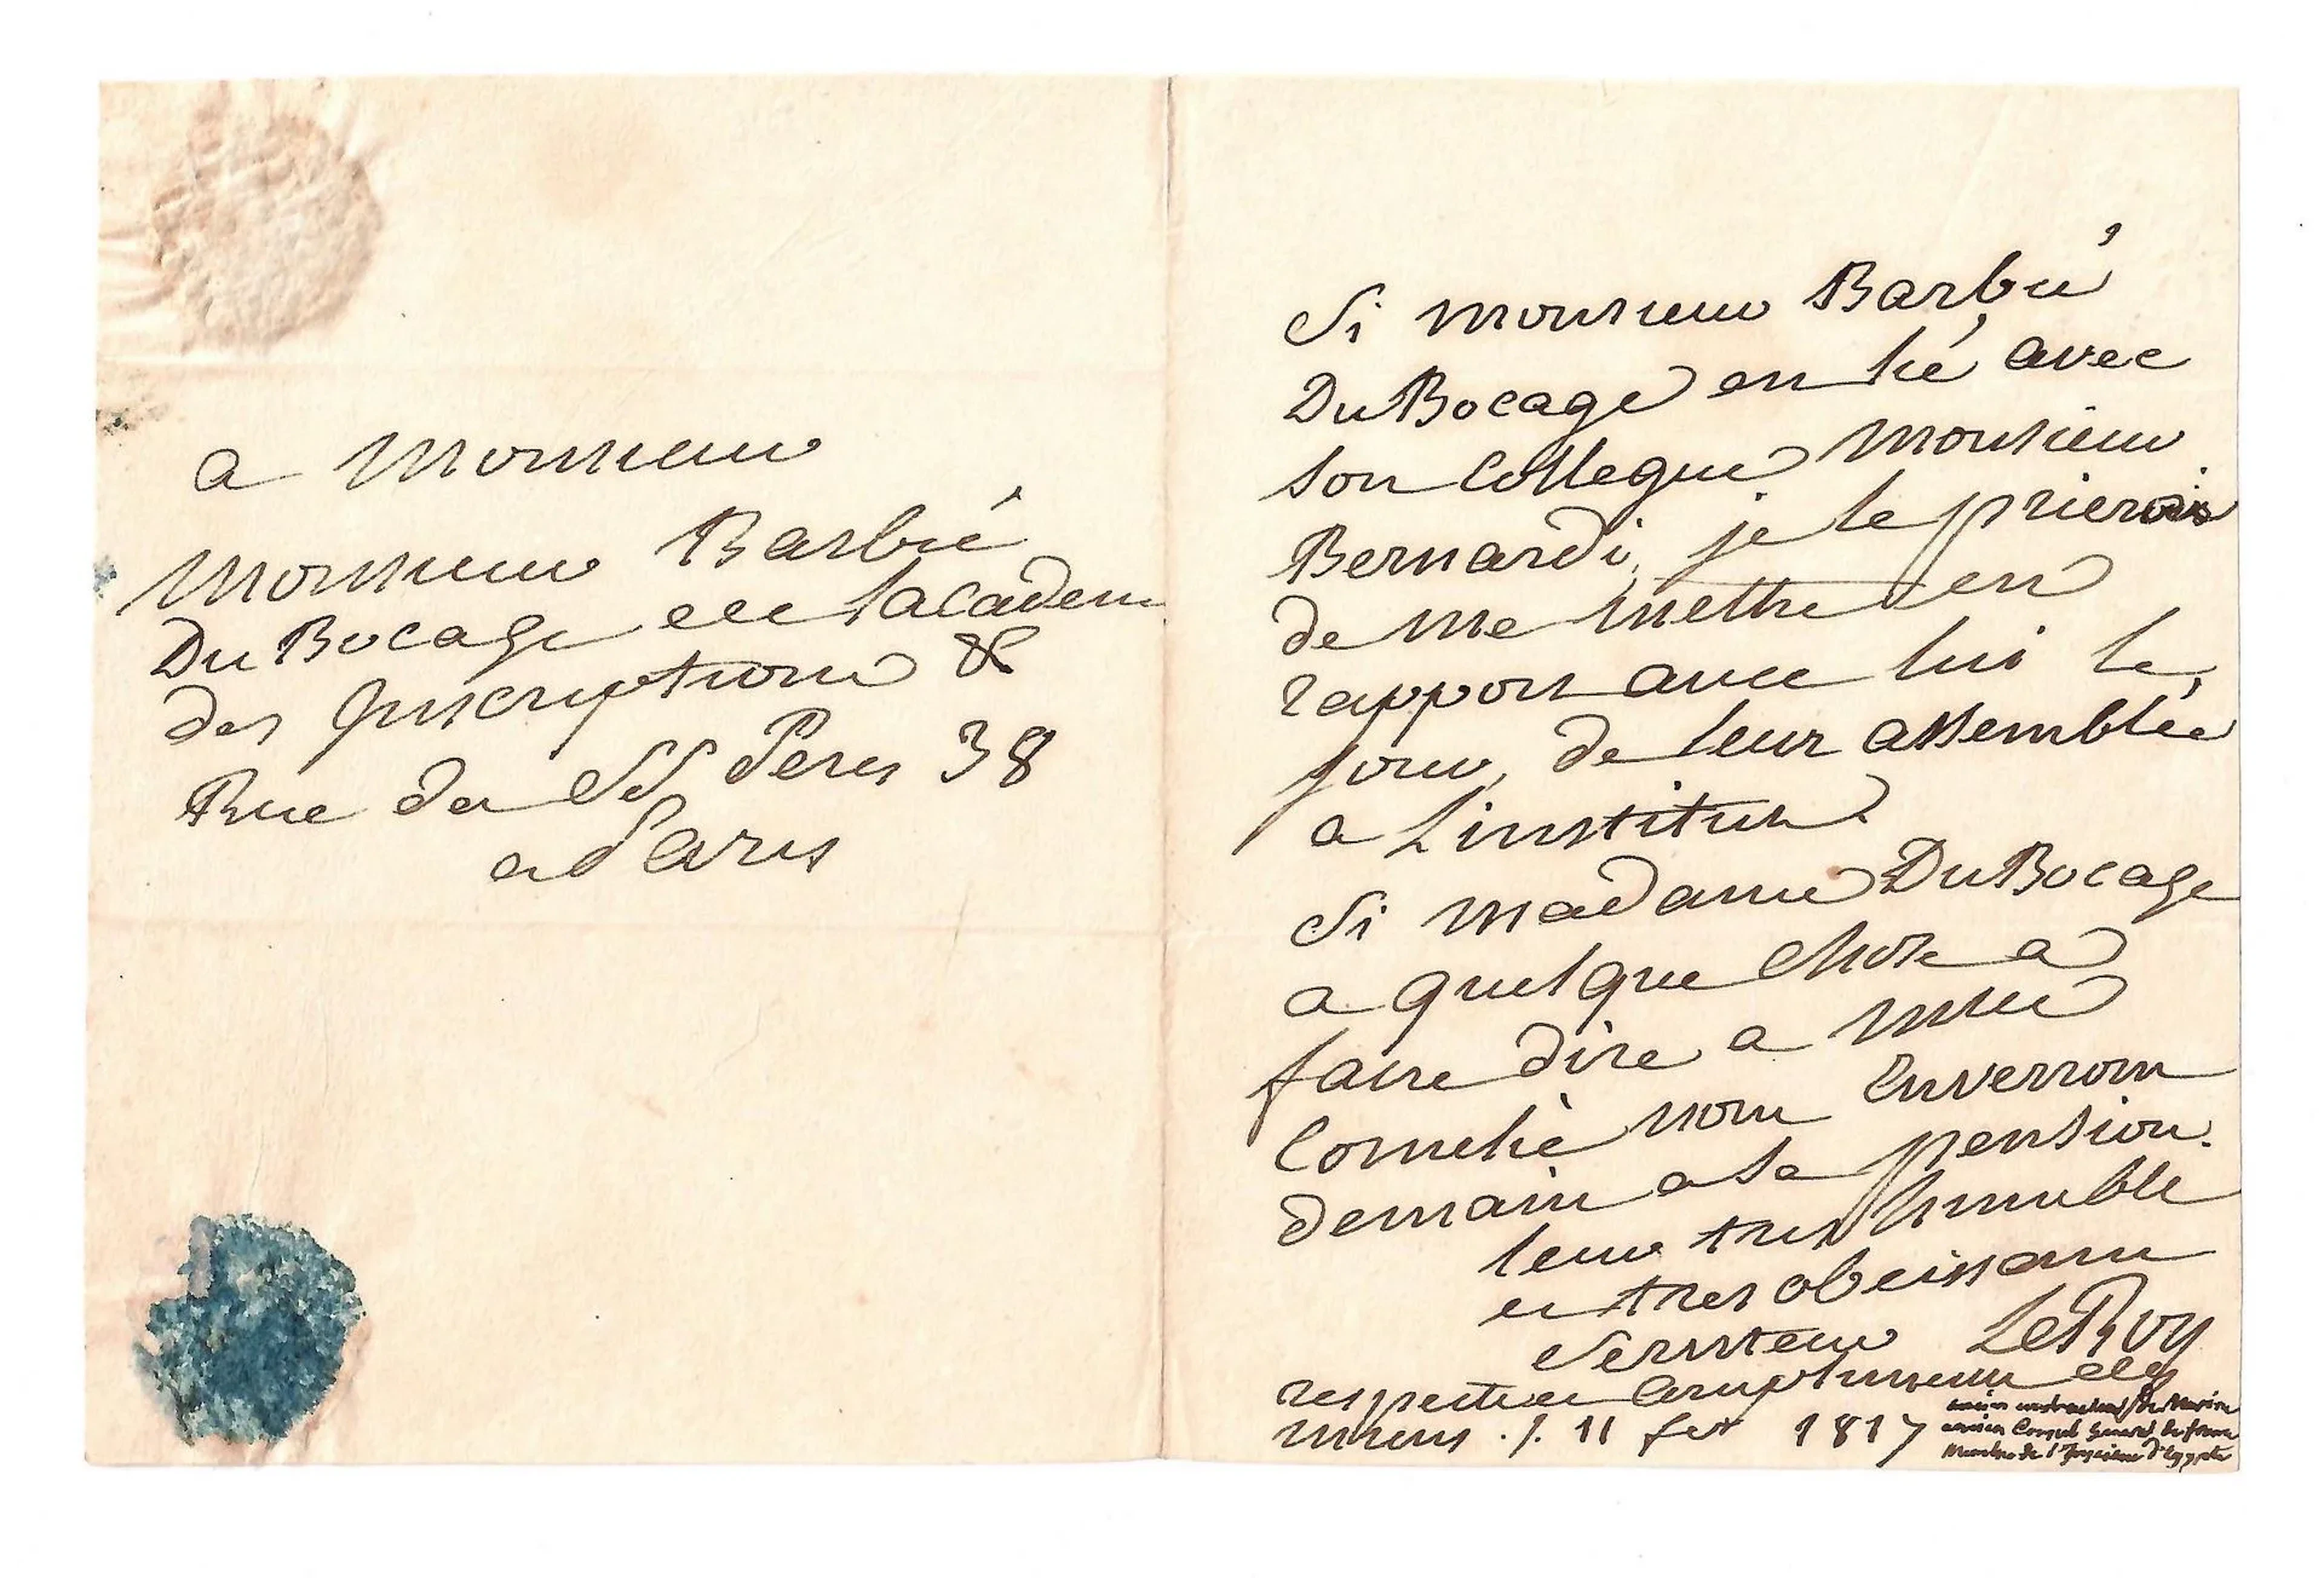 a Monsieur
Monsieur Barbié
Du Bocage de lacadem
des Inscriptions &
Rue des SS Peres 38
a Paris
Si monsieur Barbié
Du Bocage est lié avec
son Collegue Monsieur
Bernardi, je le prierois
de me mettre en
rapport avec lui le
jour, de leur assemblée
a Linstitut.
Si madame Du Bocage
a quelque chose a
faire dire a
nous Enverrons
demain a sa pension.
leur tres humble
et tres obeissant
Serviteur LeRoy
respectueux Compliments
11 fer 1817
ancien de Marine
ancien Consul General de france
Membre de l'Institut d'Egypte